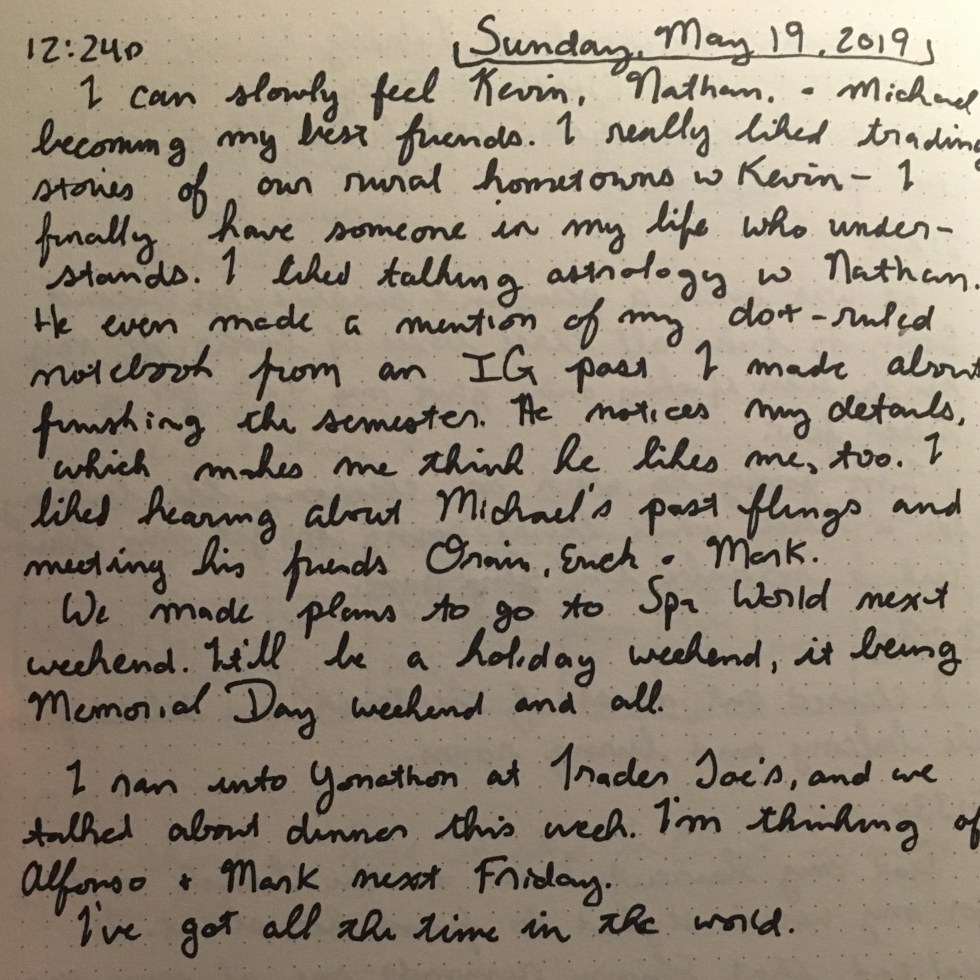 12:24p Sunday, May 19, 2019
I can slowly feel Kevin, Nathan, + Michael
becoming my best friends. I really liked trading
stories of our rural hometowns w Kevin - I
finally have someone in my life who under-
stands. I liked talking astrology w Nathan.
He even made a mention of my dot-ruled
notebook from an IG post I made about
finishing the semester. He notices my details,
which makes me think he likes me, too. I
liked hearing about Michael's past flings and
meeting his friends Orain, Erich + Mark.
We made plans to go to Spa World next
weekend. It'll be a holiday weekend, it being
Memorial Day weekend and all.
I ran into Yonathon at Trader Joe's, and we
talked about dinner this week. I'm thinking of
Alfonso + Mark next Friday.
I've got all the time in the world.